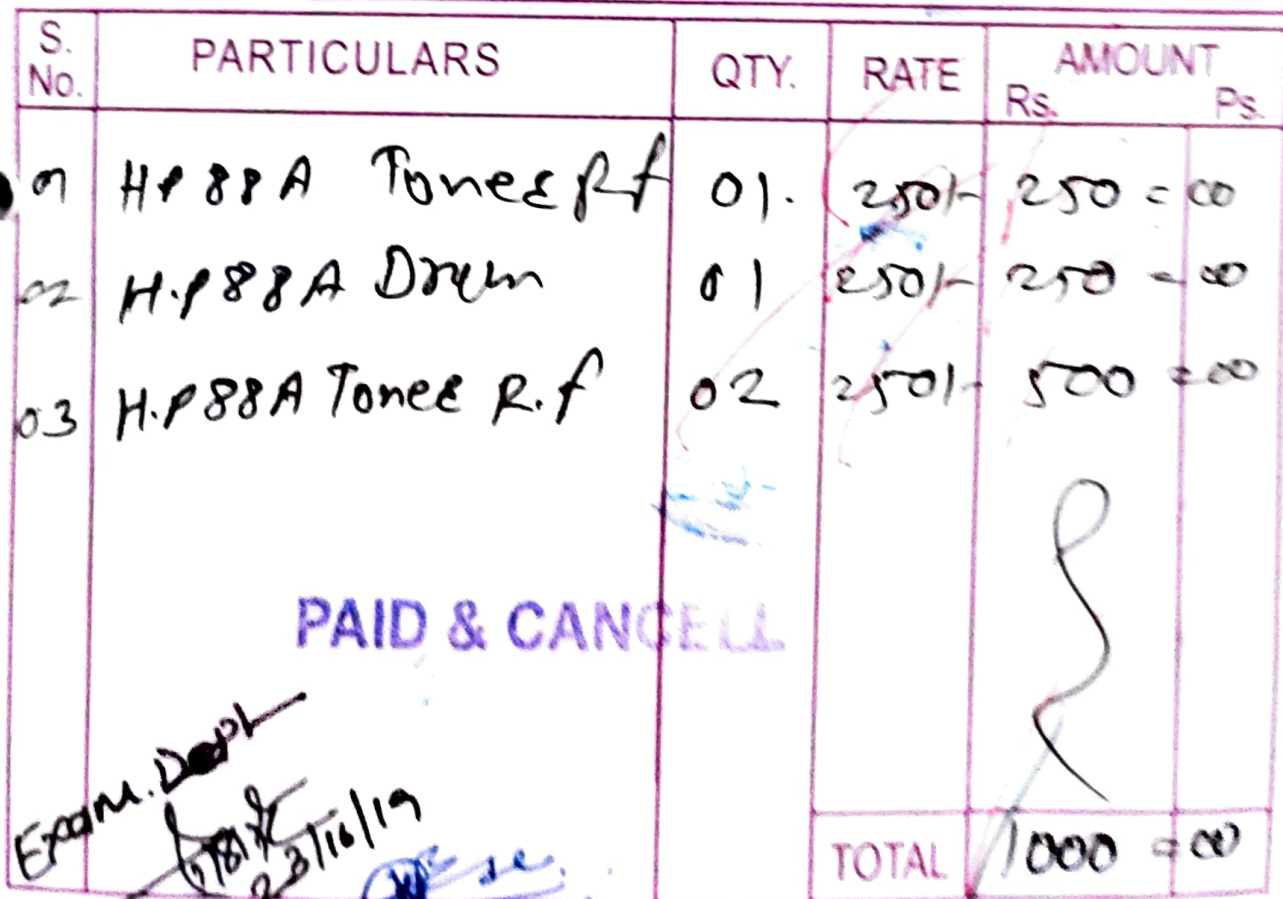 S. No. PARTICULARS QTY. RATE AMOUNT Rs. Ps.
01 HP 88A Toner Rf 01. 250/- 250 = 00
02 H.P 88A Drum 01 250/- 250 = 00
03 H.P 88A Toner R.f 02 250/- 500 = 00
PAID & CANCELL
Exam. Dept
23/10/19
TOTAL 1000 = 00